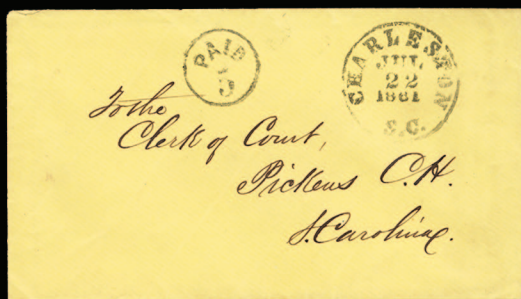 PAID
5
CHARLESTON
JUL
22
1861
S.C.
To the
Clerk of Court,
Pickens C.H.
S. Carolina.